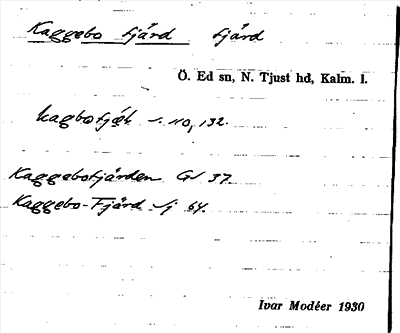 Kaggebo fjärd fjärd
Ö. Ed sn, N. Tjust hd, Kalm. l.
s. 110, 132.
Kaggebofjärden Gs 37.
Kaggebo-Fjärd Sj 64.
Ivar Modéer 1930